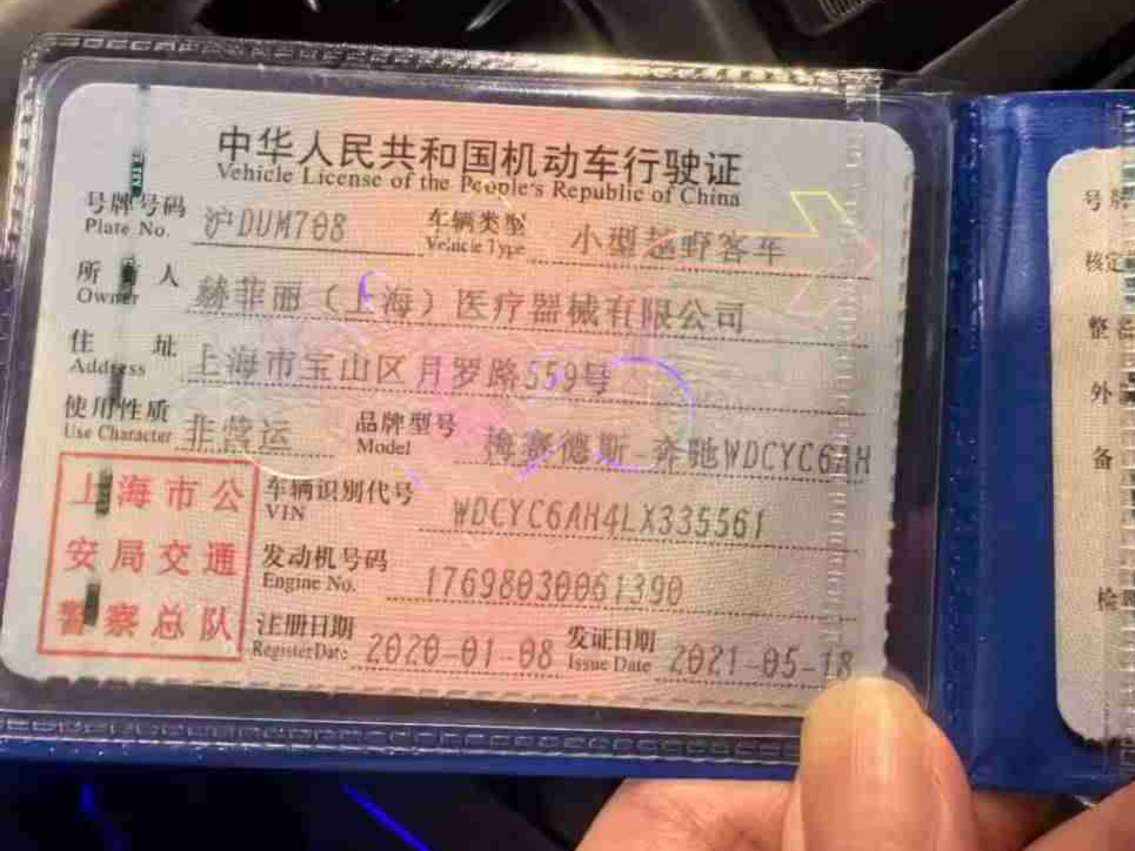 中华人民共和国机动车行驶证
Vehicle License of the People's Republic of China
号牌号码 沪DUM708 车辆类型 小型越野客车
Plate No. Vehicle Type
所有人 赫菲丽（上海）医疗器械有限公司
Owner
住址 上海市宝山区月罗路559号
Address
使用性质 非营运 品牌型号 梅赛德斯-奔驰WDCYC6AH
Use Character Model
上海市公
安局交通
警察总队
车辆识别代号 WDCYC6AH4LX335561
VIN
发动机号码 17698030061390
Engine No.
注册日期 2020-01-08 发证日期 2021-05-18
Register Date Issue Date
号牌
核定
整
外
备
检